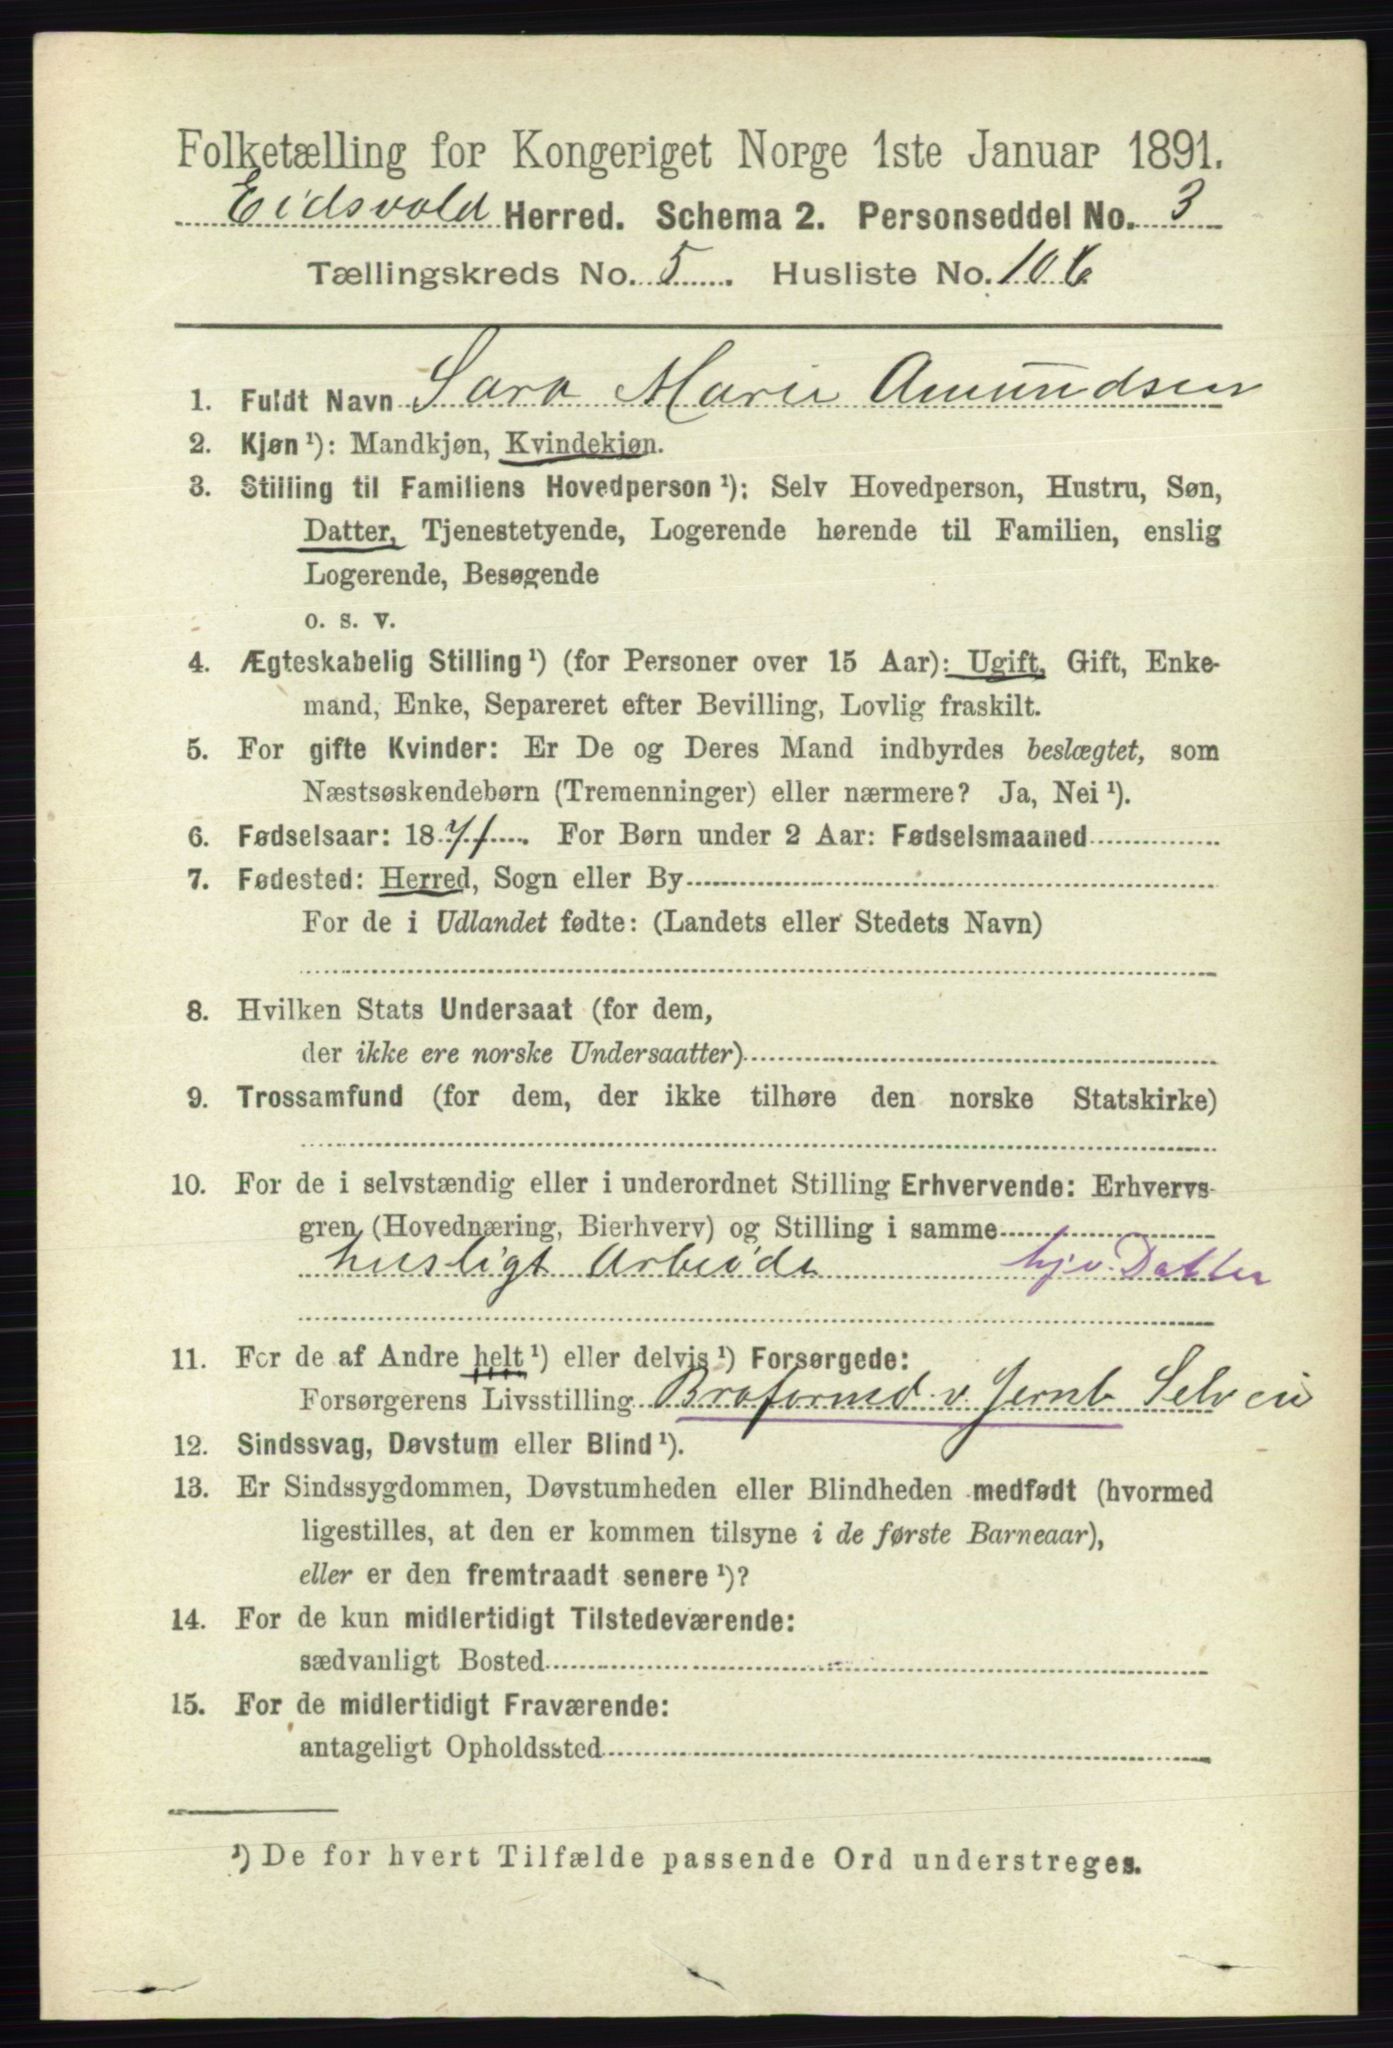 Folketælling for Kongeriget Norge 1ste Januar 1891.
Eidsvold Herred. Schema 2. Personseddel No. 3
Tællingskreds No. 5. Husliste No. 106
1. Fuldt Navn Sara Marie Amundsen
2. Kjøn ¹): Mandkjøn, Kvindekjøn.
3. Stilling til Familiens Hovedperson ¹): Selv Hovedperson, Hustru, Søn,
Datter, Tjenestetyende, Logerende hørende til Familien, enslig
Logerende, Besøgende
o. s. v.
4. Ægteskabelig Stilling ¹) (for Personer over 15 Aar): Ugift, Gift, Enke-
mand, Enke, Separeret efter Bevilling, Lovlig fraskilt.
5. For gifte Kvinder: Er De og Deres Mand indbyrdes beslægtet, som
Næstsøskendebørn (Tremenninger) eller nærmere? Ja, Nei ¹).
6. Fødselsaar: 1871. For Børn under 2 Aar: Fødselsmaaned
7. Fødested: Herred, Sogn eller By
For de i Udlandet fødte: (Landets eller Stedets Navn)
8. Hvilken Stats Undersaat (for dem,
der ikke ere norske Undersaatter)
9. Trossamfund (for dem, der ikke tilhøre den norske Statskirke)
10. For de i selvstændig eller i underordnet Stilling Erhvervende: Erhvervs-
gren (Hovednæring, Bierhverv) og Stilling i samme
husligt Arbeide hjv. Datter
11. For de af Andre helt ¹) eller delvis ¹) Forsørgede:
Forsørgerens Livsstilling v. Jernb Selveie
12. Sindssvag, Døvstum eller Blind ¹).
13. Er Sindssygdommen, Døvstumheden eller Blindheden medfødt (hvormed
ligestilles, at den er kommen tilsyne i de første Barneaar),
eller er den fremtraadt senere ¹)?
14. For de kun midlertidigt Tilstedeværende:
sædvanligt Bosted
15. For de midlertidigt Fraværende:
antageligt Opholdssted
¹) De for hvert Tilfælde passende Ord understreges.